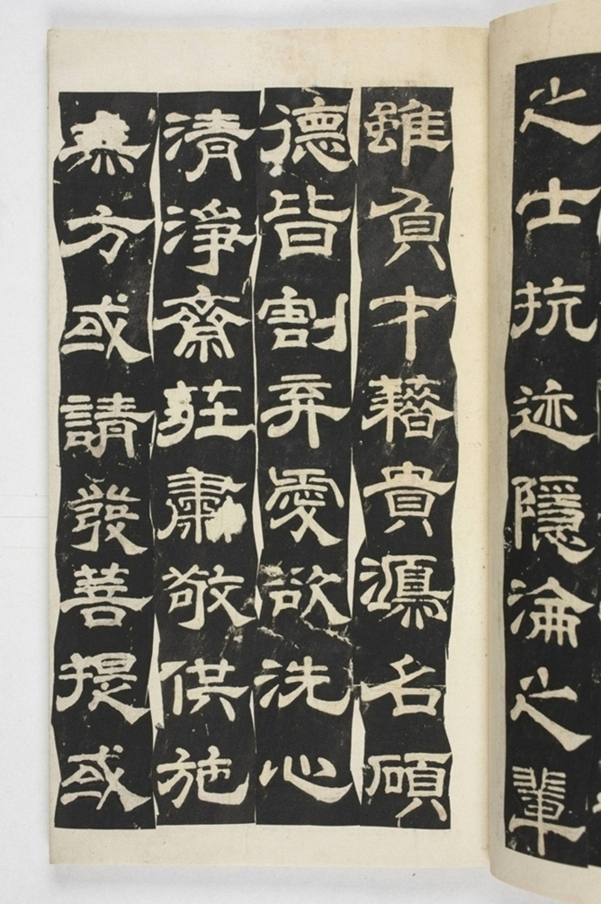 之士抗迹隱淪之輩
雖負才藉貴鴻名碩
德皆割弃愛欲洗心
清淨齋莊肅敬供施
無方或請發菩提或